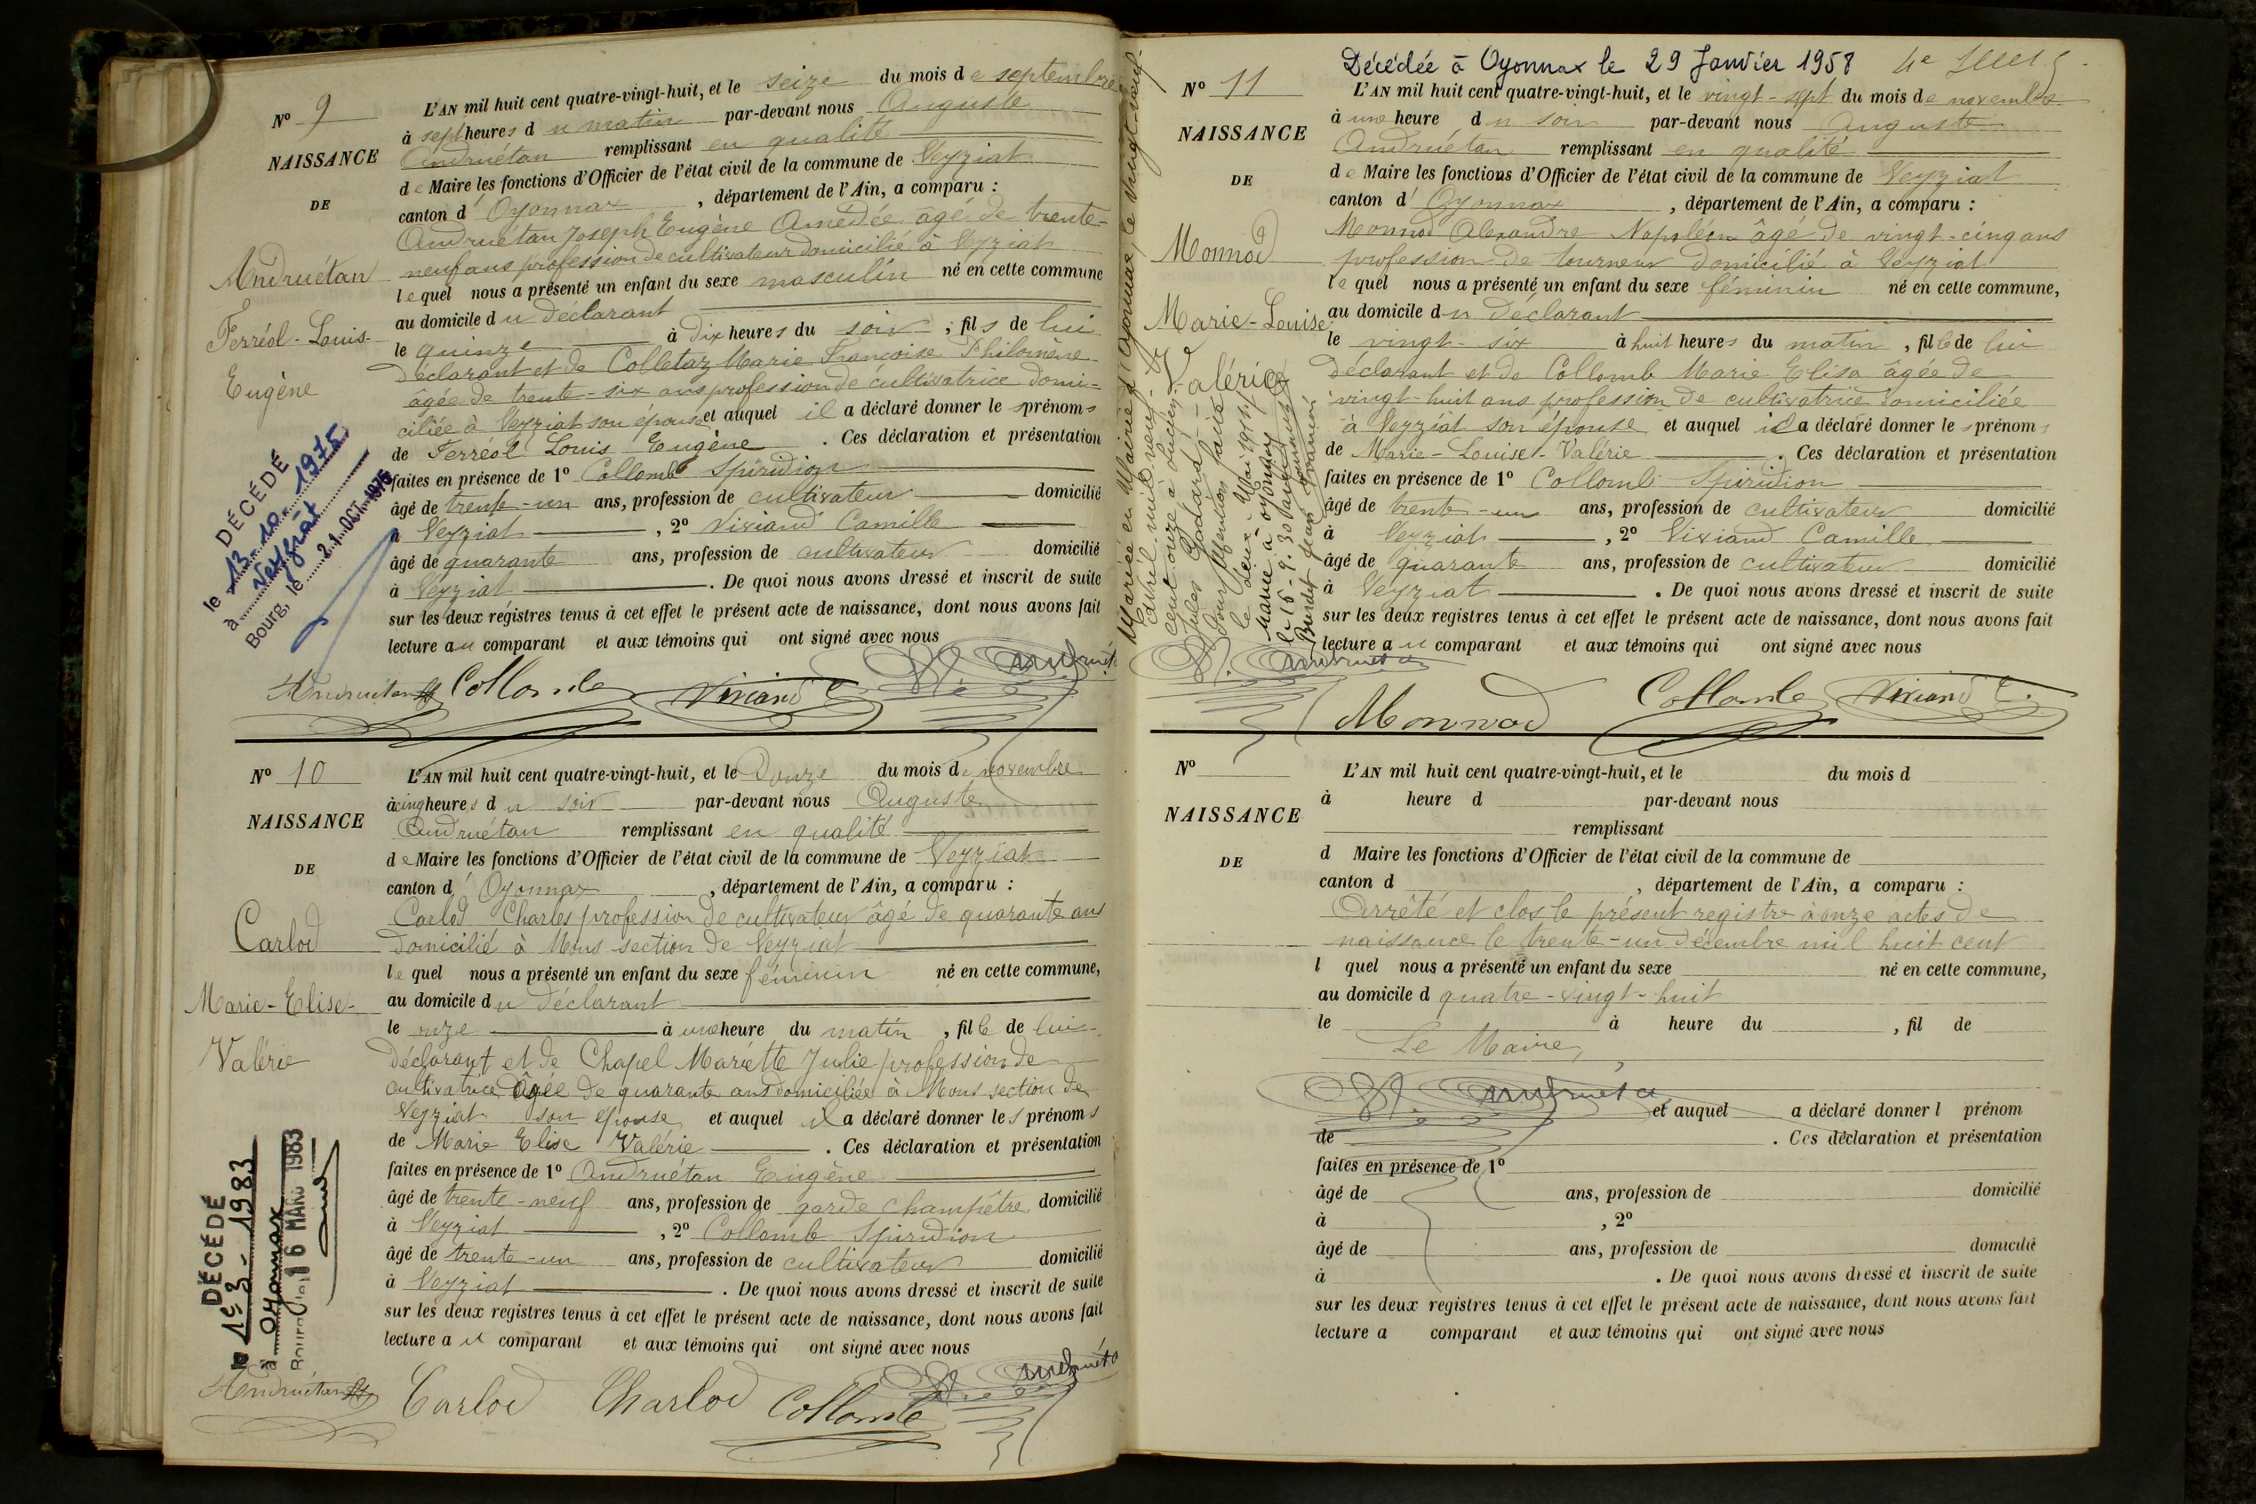 Nº 9
NAISSANCE
DE
Andruétan
Ferréol-Louis-
Eugène
L'AN mil huit cent quatre-vingt-huit, et le seize du mois de septembre
à sept heures du matin par-devant nous Auguste
Andruétan remplissant en qualité
de Maire les fonctions d'Officier de l'état civil de la commune de Veyziat
canton d' Oyonnax , département de l'Ain, a comparu :
Andruétan Joseph Eugène Amédée âgé de trente-
neuf ans profession de cultivateur domicilié à Veyziat
lequel nous a présenté un enfant du sexe masculin né en cette commune
au domicile du déclarant
le quinze à dix heures du soir ; fils de lui
déclarant et de Colletaz Marie Françoise Philomène
âgée de trente-six ans profession de cultivatrice domi-
ciliée à Veyziat son épouse et auquel il a déclaré donner les prénoms
de Ferréol Louis Eugène . Ces déclaration et présentation
faites en présence de 1º Collomb Spiridion
âgé de trente-un ans, profession de cultivateur domicilié
à Veyziat , 2º Viviand Camille
âgé de quarante ans, profession de cultivateur domicilié
à Veyziat . De quoi nous avons dressé et inscrit de suite
sur les deux registres tenus à cet effet le présent acte de naissance, dont nous avons fait
lecture au comparant et aux témoins qui ont signé avec nous
DÉCÉDÉ
le 13.10.1975
à Veyziat
Bourg, le 21 OCT. 1975
Andruétan Collomb Viviand C.
Nº 10
NAISSANCE
DE
Carlod
Marie-Elise-
Valérie
L'AN mil huit cent quatre-vingt-huit, et le douze du mois de novembre
à cinq heures du soir par-devant nous Auguste
Andruétan remplissant en qualité
de Maire les fonctions d'Officier de l'état civil de la commune de Veyziat
canton d' Oyonnax , département de l'Ain, a comparu :
Carlod Charles profession de cultivateur âgé de quarante ans
domicilié à Mons section de Veyziat
lequel nous a présenté un enfant du sexe féminin né en cette commune,
au domicile du déclarant
le onze à une heure du matin , fille de lui
déclarant et de Chapel Mariette Julie profession de
cultivatrice âgée de quarante ans domiciliée à Mons section de
Veyziat son épouse et auquel il a déclaré donner les prénoms
de Marie Elise Valérie . Ces déclaration et présentation
faites en présence de 1º Andruétan Eugène
âgé de trente-neuf ans, profession de garde champêtre domicilié
à Veyziat , 2º Collomb Spiridion
âgé de trente-un ans, profession de cultivateur domicilié
à Veyziat . De quoi nous avons dressé et inscrit de suite
sur les deux registres tenus à cet effet le présent acte de naissance, dont nous avons fait
lecture au comparant et aux témoins qui ont signé avec nous
DÉCÉDÉ
le 1er 3 - 1983
à Oyonnax
Bourg, le 16 MARS 1983
Andruétan Carlod Charlod Collomb
Décédée à Oyonnax le 29 Janvier 1958
Nº 11
NAISSANCE
DE
Monnod
Marie-Louise
Valérie
L'AN mil huit cent quatre-vingt-huit, et le vingt-sept du mois de novembre
à une heure du soir par-devant nous Auguste
Andruétan remplissant en qualité
de Maire les fonctions d'Officier de l'état civil de la commune de Veyziat
canton d' Oyonnax , département de l'Ain, a comparu :
Monnod Alexandre Napoléon âgé de vingt-cinq ans
profession de tourneur domicilié à Veyziat
lequel nous a présenté un enfant du sexe féminin né en cette commune,
au domicile du déclarant
le vingt-six à huit heures du matin , fille de lui
déclarant et de Collomb Marie Elisa âgée de
vingt-huit ans profession de cultivatrice domiciliée
à Veyziat son épouse et auquel il a déclaré donner les prénoms
de Marie-Louise-Valérie . Ces déclaration et présentation
faites en présence de 1º Collomb Spiridion
âgé de trente-un ans, profession de cultivateur domicilié
à Veyziat , 2º Viviand Camille
âgé de quarante ans, profession de cultivateur domicilié
à Veyziat . De quoi nous avons dressé et inscrit de suite
sur les deux registres tenus à cet effet le présent acte de naissance, dont nous avons fait
lecture au comparant et aux témoins qui ont signé avec nous
Mariée en Mairie d'Oyonnax, le vingt-neuf
avril mil neuf-
cent onze à
Jules Godard
Pour Mention faite
le deux Mai 1911
Marié à Oyonnax
Monnod Collomb Viviand C.
Nº
NAISSANCE
DE
L'AN mil huit cent quatre-vingt-huit, et le du mois d
à heure d par-devant nous
remplissant
d Maire les fonctions d'Officier de l'état civil de la commune de
canton d , département de l'Ain, a comparu :
Arrêté et clos le présent registre à onze actes de
naissance le trente-un décembre mil huit cent
l quel nous a présenté un enfant du sexe né en cette commune,
au domicile d quatre-vingt-huit
le à heure du , fil de
Le Maire,
et auquel a déclaré donner l prénom
de . Ces déclaration et présentation
faites en présence de 1º
âgé de ans, profession de domicilié
à , 2º
âgé de ans, profession de domicilié
à . De quoi nous avons dressé et inscrit de suite
sur les deux registres tenus à cet effet le présent acte de naissance, dont nous avons fait
lecture a comparant et aux témoins qui ont signé avec nous